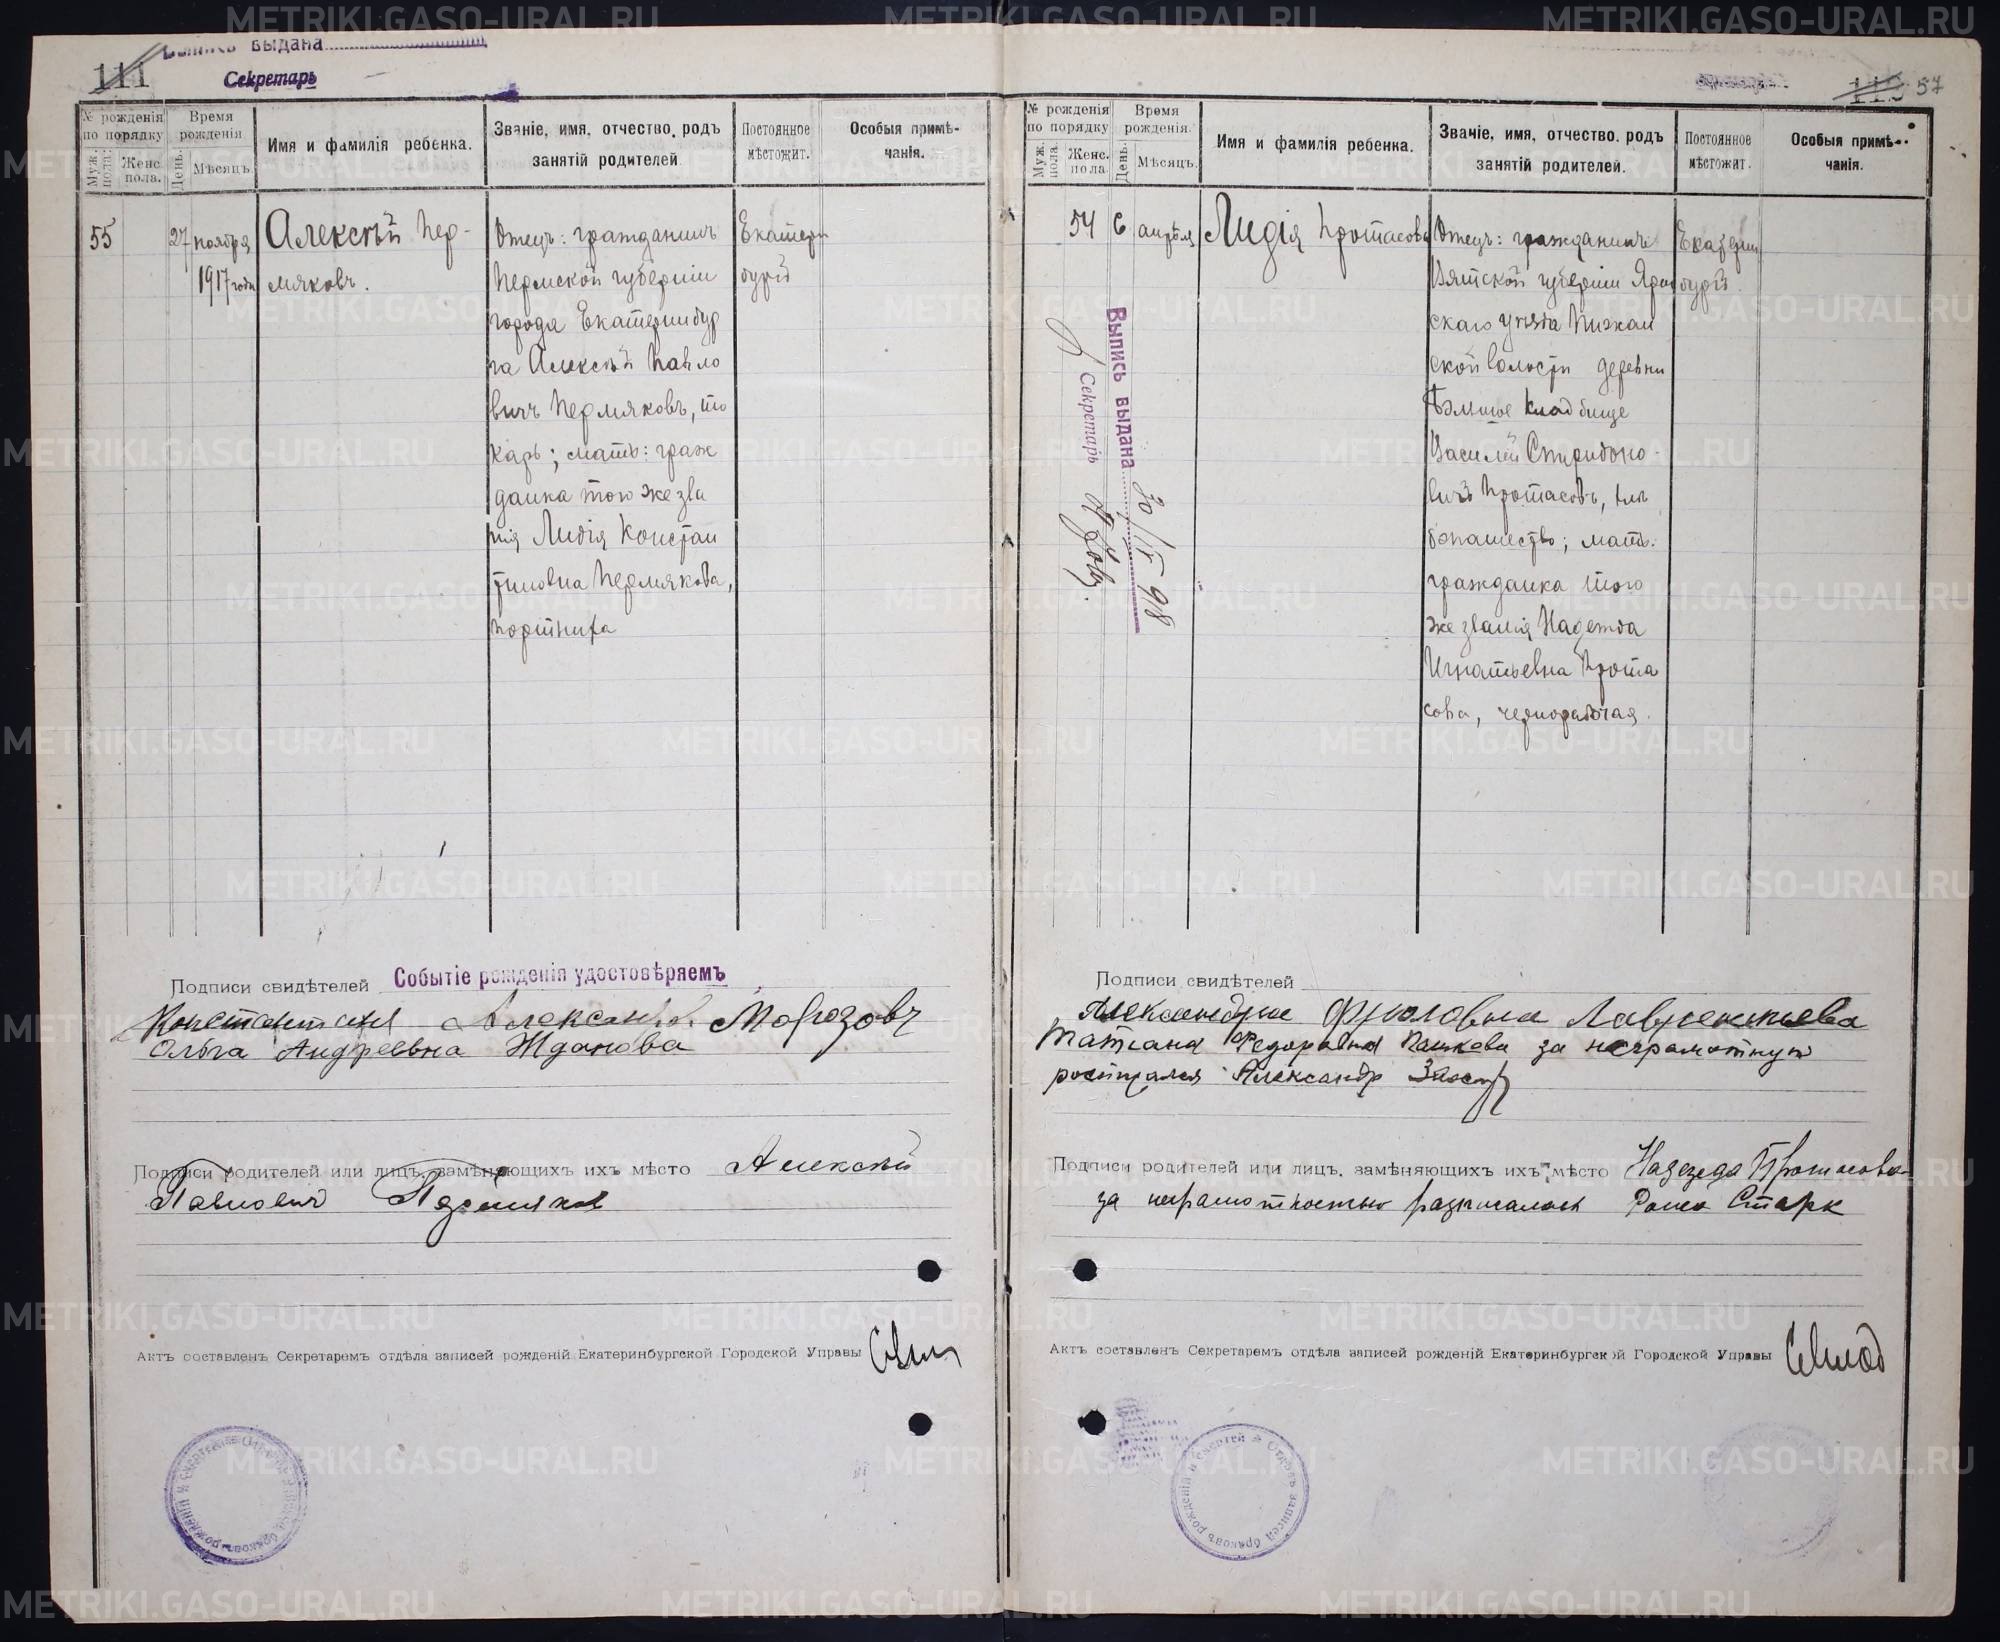 111
Выпись выдана
Секретарь
№ рожденія по порядку
Муж. пола.
Женс. пола.
Время рожденія
День.
Мѣсяцъ.
Имя и фамилія ребенка.
Званіе, имя, отчество, родъ занятій родителей.
Постоянное мѣстожит.
Особыя примѣчанія.
55
27 ноября
1917 года
Алексѣй Пер-
мяковъ.
Отецъ: гражданинъ
Пермской губерніи
города Екатеринбур
га Алексѣй Павло
вичъ Пермяковъ, то
карь; мать: граж
данка того же зва
нія Лидія Констан
тиновна Пермякова,
портниха
Екатерин
бургъ
Подписи свидѣтелей
Событіе рожденія удостовѣряемъ
Морозовъ
Ольга Андреевна Жданова
Подписи родителей или лицъ, замѣняющихъ ихъ мѣсто Алексѣй
Павлович Пермяков
Актъ составленъ Секретаремъ отдѣла записей рожденій Екатеринбургской Городской Управы
57
№ рожденія по порядку
Муж. пола.
Женс. пола.
Время рожденія.
День.
Мѣсяцъ.
Имя и фамилія ребенка.
Званіе, имя, отчество, родъ занятій родителей.
Постоянное мѣстожит.
Особыя примѣчанія.
54
6 апрѣля
Лидія Протасова
Отецъ: гражданинъ
Вятской губерніи Яран
скаго уѣзда Пижан
ской волости деревни
кладбище
Василій Спиридоно-
вичъ Протасовъ, хлѣ
бопашество; мать:
гражданка того
же званія Надежда
Игнатьевна Прота
сова, чернорабочая.
Екатерин
бургъ.
Выпись выдана 30/IV 918
Секретарь
Подписи свидѣтелей
Лаврентьева
Татиана Федоровна за неграмотную
Александр
Подписи родителей или лицъ, замѣняющихъ ихъ мѣсто Надежда Протасова
за неграмотностью Старк
Актъ составленъ Секретаремъ отдѣла записей рожденій Екатеринбургской Городской Управы
Отдѣлъ записей браковъ, рожденій и смертей
METRIKI.GASO-URAL.RU